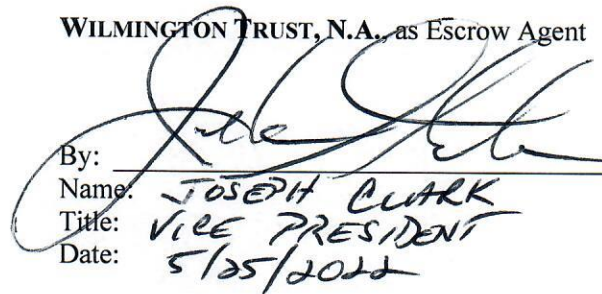 WILMINGTON TRUST, N.A., as Escrow Agent
By:
Name: JOSEPH CLARK
Title: VICE PRESIDENT
Date: 5/25/2022